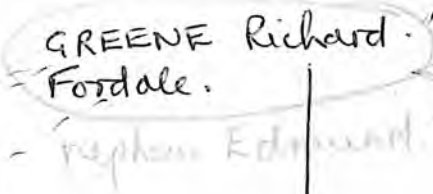 GREENE Richard.
Fordale.
- nephew Edmund.